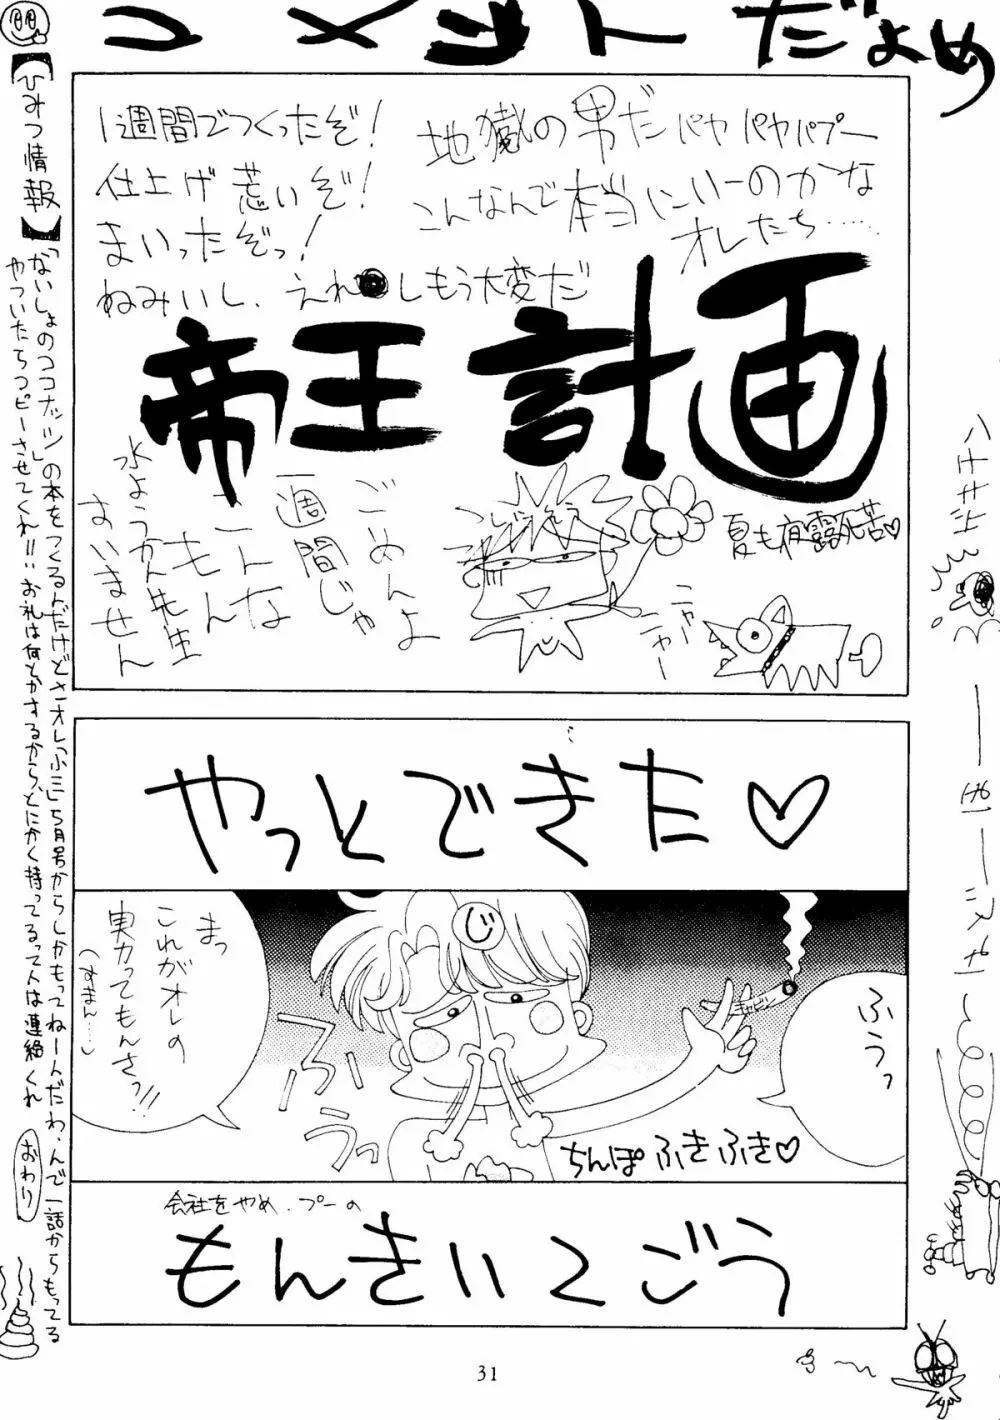 コメントだよめ
1週間でつくったぞ!
仕上げ荒いぞ!
まいったぞっ!
ねみいし、えれしもう大変だ
地獄の男だパヤパヤパプー
こんなんで本当にいーのかな
オレたち……
帝王計画
ごめんよ
一週間じゃ
こんな
もん
水ようかん先生
すいません
夏も夜露死苦♡
ニャー
ニャー
やっとできた♡
まっ
これがオレの
実力ってもんさっ!!
(すまん…)
じ
ふぅっ
キャビン
ふぅっ
ちんぽふきふき♡
会社をやめ、プーの
もんきいくごう
【ひみつ情報】
「ないしょのココナッツ」の本をつくるんだけどさ、オレ「小三」5月号からしかもってねーんだわ、んで一話からもってる
やつ、いたらコピーさせてくれ!! お礼は何とかするから、とにかく持ってるって人は連絡くれ
おわり
31